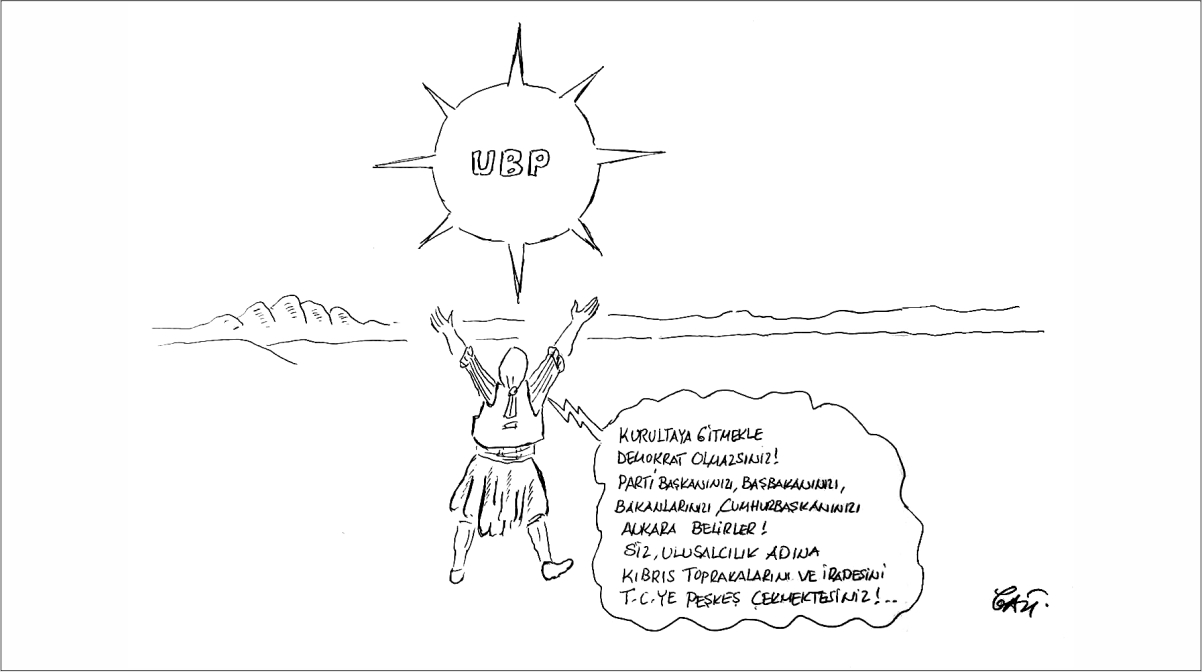 UBP
KURULTAYA GİTMEKLE
DEMOKRAT OLMAZSINIZ!
PARTİ BAŞKANINIZI, BAŞBAKANINIZI,
BAKANLARINIZI, CUMHURBAŞKANINIZI
ANKARA BELİRLER!
SİZ, ULUSALCILIK ADINA
KIBRIS TOPRAKALARINI VE İRADESİNİ
T.C.YE PEŞKEŞ ÇEKMEKTESİNİZ!..